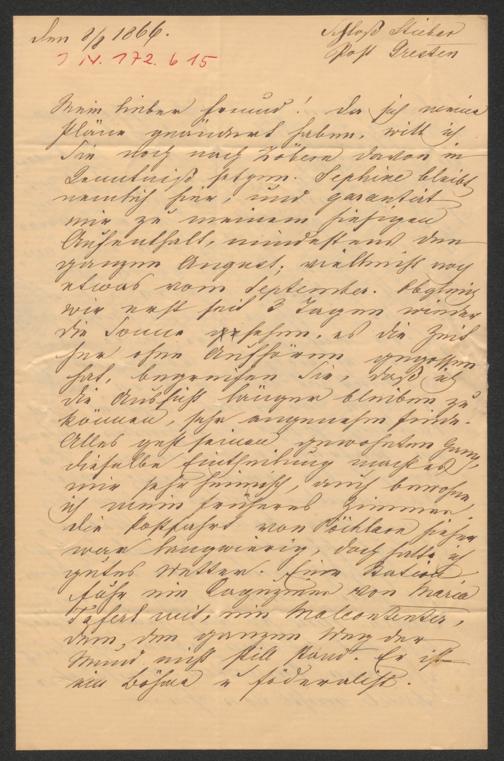 den 8/8 1866.
Schloß Stiebar
Post Gresten
I.N. 172.615
Mein lieber Freund! Da ich meine
Pläne geändert habe, will ich
Sie noch nach Zöbern davon in
Kenntniß setzen. Sephine bleibt
nemlich hier, und garantirt
mir zu meinem hiesigen
Aufenthalt, mindestens den
ganzen August, vielleicht noch
etwas vom September. Obgleich
wir erst seit 3 Tagen wieder
die Sonne sehen, es die Zeit
her ohne Aufhören gegossen
hat, begreifen Sie, daß ich
die Aussicht länger bleiben zu
können, sehr angenehm finde.
Alles geht seinen gewohnten Gang,
dieselbe Eintheilung macht es
mir sehr heimisch, auch bewohne
ich mein früheres Zimmer,
die Postfahrt von Pöchlarn hieher
war langwierig, doch hatte ich
gutes Wetter. Eine Station
fuhr ein von Maria
Taferl mit, ein Malcontenter,
dem, den ganzen Weg der
Mund nicht still stand. Er ist
ein Böhme u föderalist.